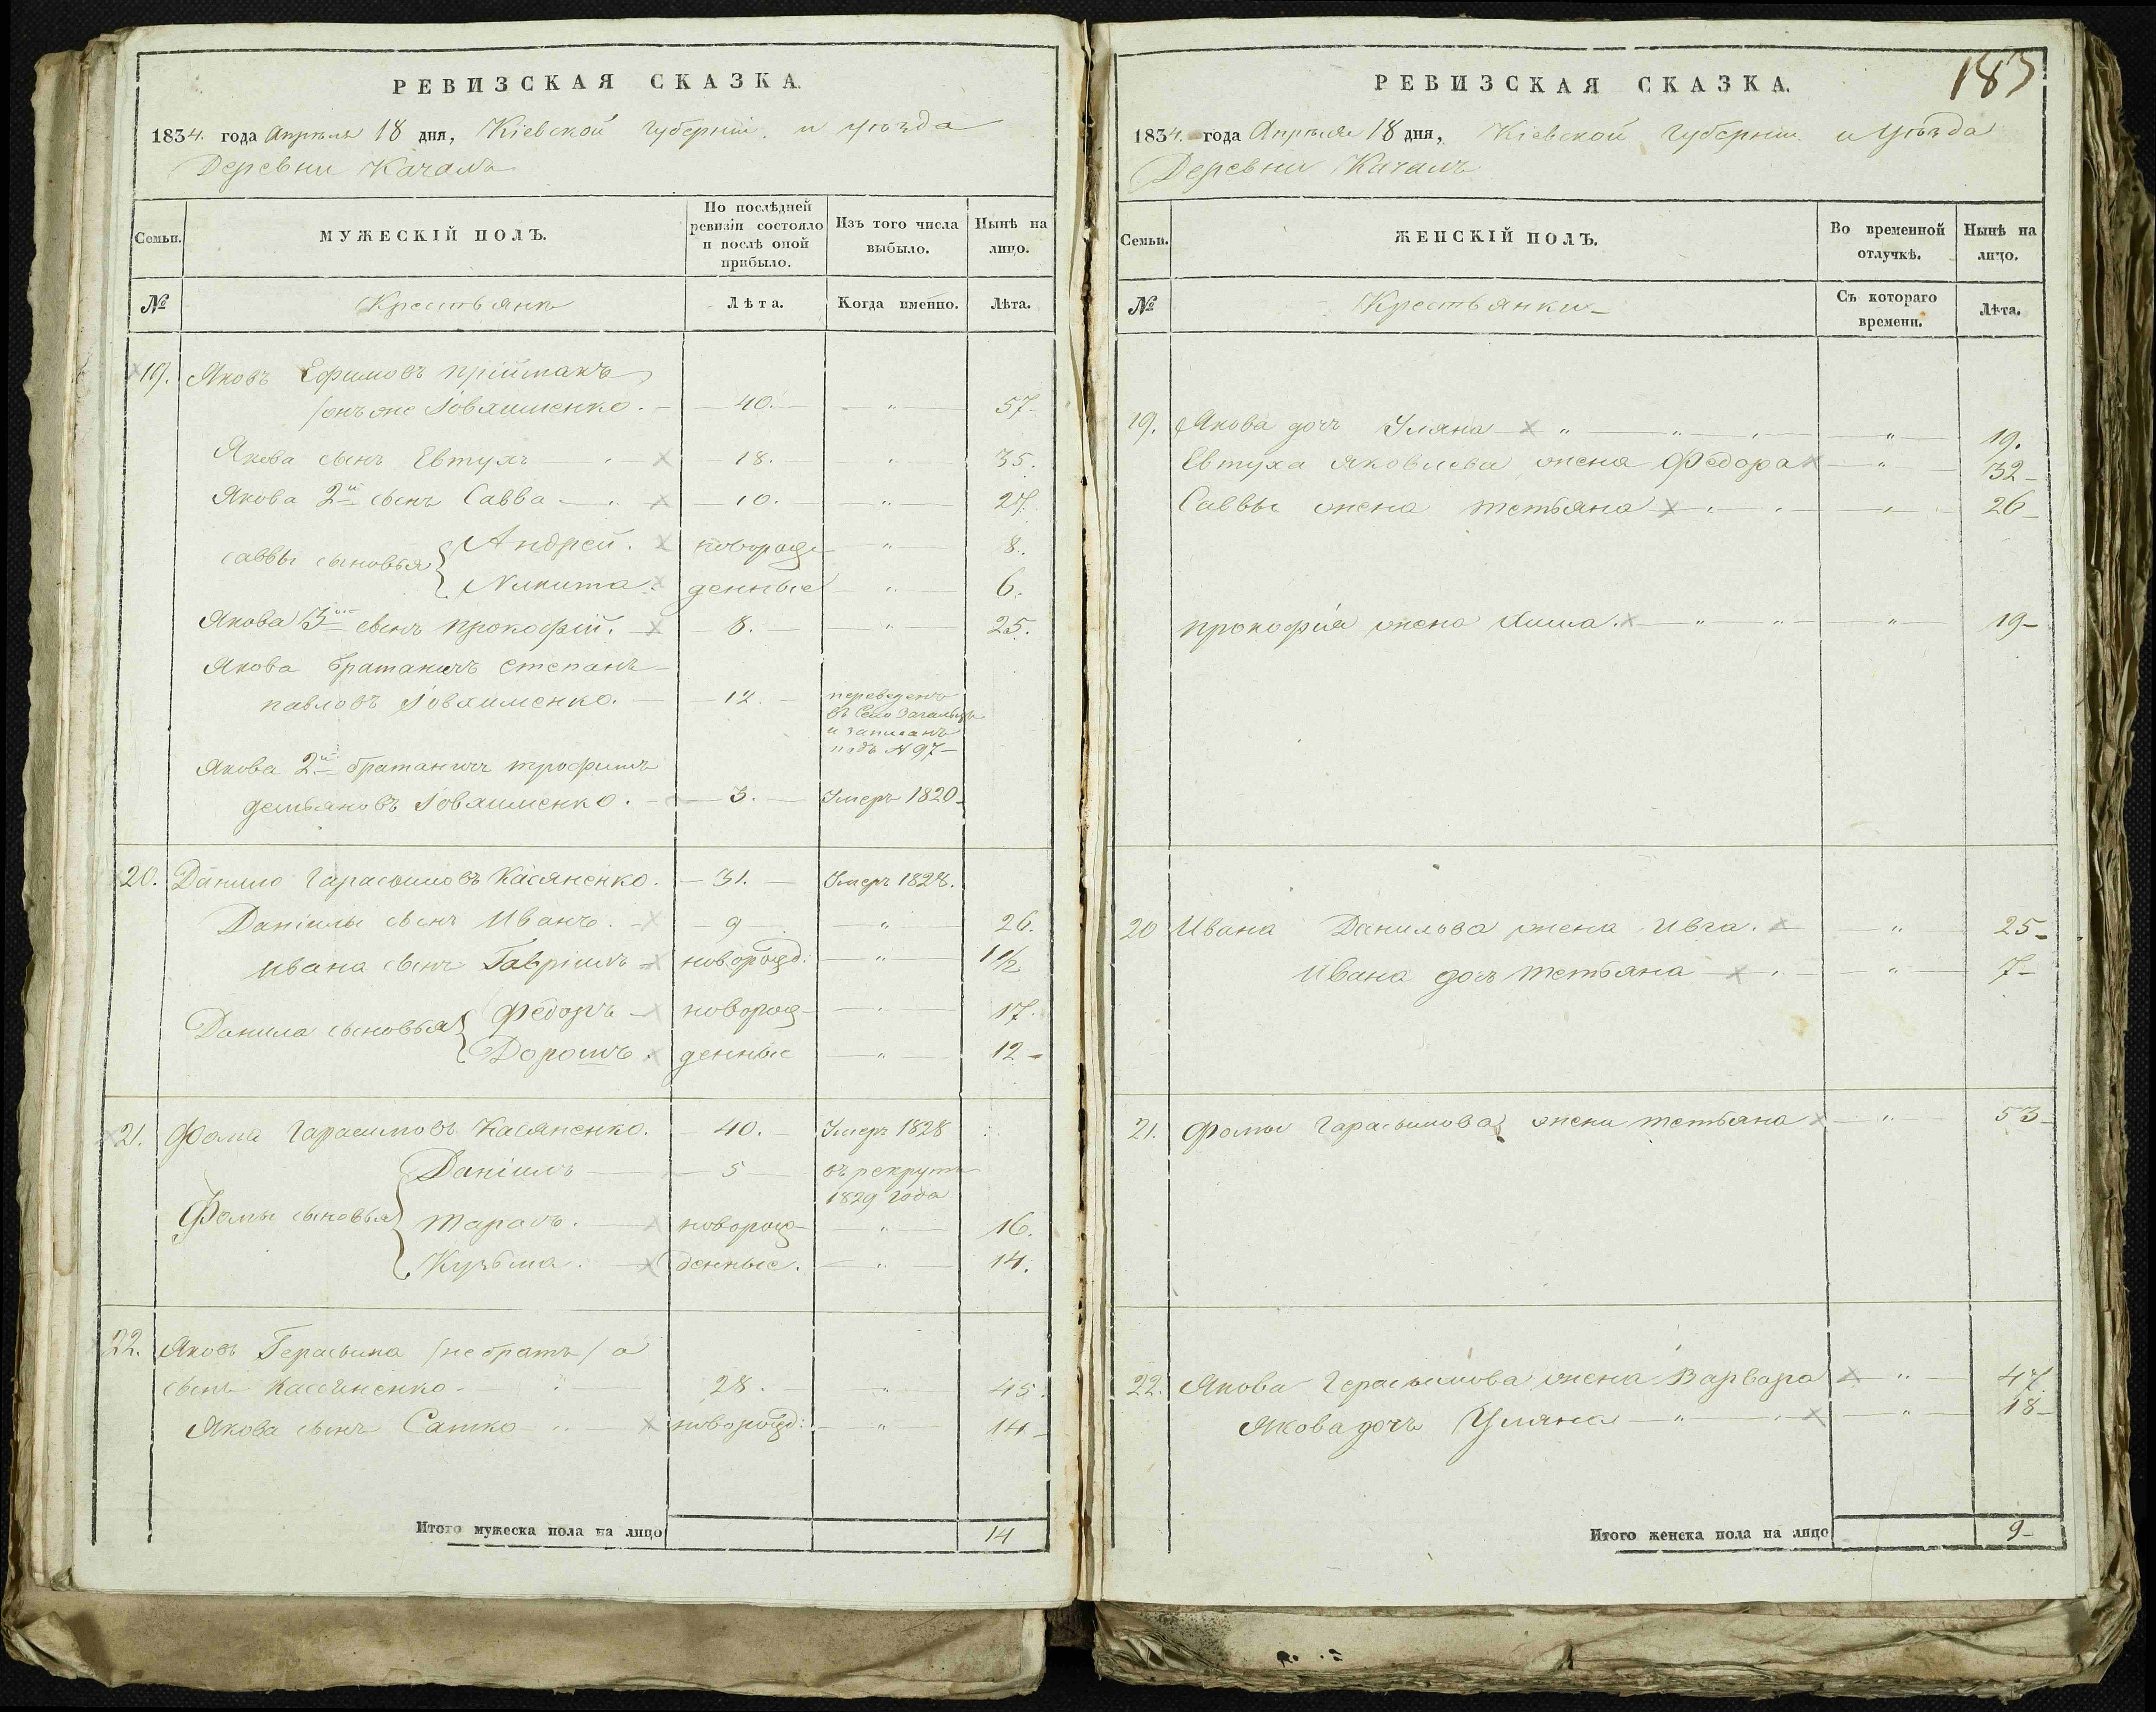 РЕВИЗСКАЯ СКАЗКА.
1834. года Апрѣля 18 дня, Кіевской губерніи. и уѣзда
Деревни Качалъ
Семьи. МУЖЕСКІЙ ПОЛЪ. По послѣдней ревизіи состояло и послѣ оной прибыло. Изъ того числа выбыло. Нынѣ на лицо.
№ Крестьянъ Лѣта. Когда именно. Лѣта.
19. Яковъ Ефимовъ пріймакъ
/онъ же Іовхименко. 40. " 57
Якова сынъ Евтухъ х 18. " 35.
Якова 2й сынъ Савва х 10. " 27.
саввы сыновья Андрей. х новорож- " 8.
Никита. х денные " 6.
Якова 3й сынъ прокофій. х 8. " 25.
Якова братаничъ степанъ
павловъ Іовхименко. 12. переведенъ
въ Село
и записанъ
подъ № 97
Якова 2й братаничъ трофимъ
демьяновъ Іовхименко. 3. Умеръ 1820
20. Данило Гарасимовъ Касяненко. 31. Умеръ 1828.
Даніилы сынъ Иванъ. х 9 " 26.
Ивана сынъ Гавріилъ х новорожд: " 1 1/2
Данила сыновья Федоръ х новорож- " 17.
Дорошъ. х денные " 12
21. Фома Гарасимовъ Касяненко. 40. Умеръ 1828
Даніилъ 5 въ рекруты
1829 года
Фомы сыновья Тарасъ. х новорож- " 16.
Кузьма. х денные. " 14.
22. Яковъ Герасима /не братъ/ а
сынъ Касьяненко 28. " 45.
Якова сынъ Сашко х новорожд: " 14
Итого мужеска пола на лицо 14
183
РЕВИЗСКАЯ СКАЗКА.
1834. года Апрѣля 18 дня, Кіевской Губерніи и Уѣзда
Деревни Качалъ
Семьи. ЖЕНСКІЙ ПОЛЪ. Во временной отлучкѣ. Нынѣ на лицо.
№ Крестьянки Съ котораго времени. Лѣта.
19. Якова дочъ Уляна х " " 19.
Евтуха яковлева жена Федора х " 32
Саввы жена тетьяна х " 26
прокофія жена х " 19
20 Ивана Данилова жена Ивга. х " 25
Ивана дочъ тетьяна х " 7
21. Фомы Гарасимова жена тетьяна х " 53
22. Якова Герасимова жена Варвара х " 47
Якова дочъ Уляна " х " 18
Итого женска пола на лицо 9